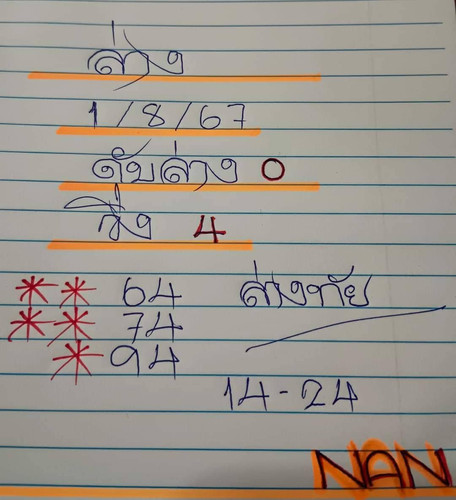 ล่าง
1/8/67
ดับล่าง 0
วิ่ง 4
** 64 ล่างทัย
** 74
* 94
14-24
NAN